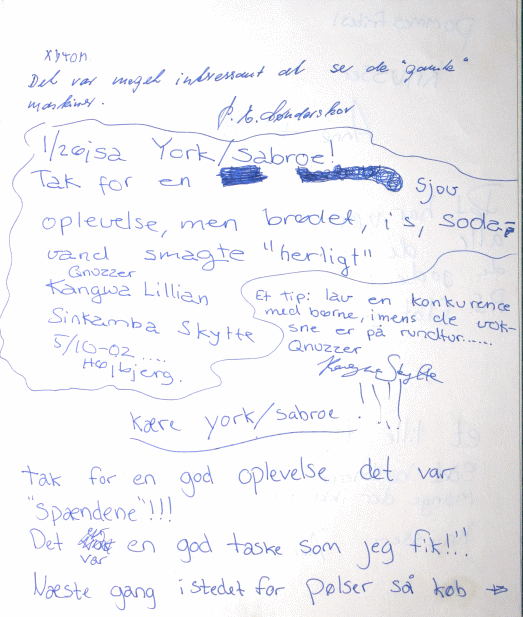 Det var meget intressant at se de "gamle"
maskiner.
York/Sabroe!
Tak for en sjov
oplevelse, men brødet, is, soda-
vand smagte "herligt"
Gnuzzer
Kangwa Lillian
Sinkamba Skytte
5/10-02.....
Højbjerg.
Et tip: lav en konkurence
med børne, imens de vok-
sne er på rundtur......
Gnuzzer
Kangwa Skytte
Kære york/sabroe !!!!
tak for en god oplevelse det var
"spændene"!!!
Det var en god taske som jeg fik!!!
Næste gang istedet for pølser så køb →